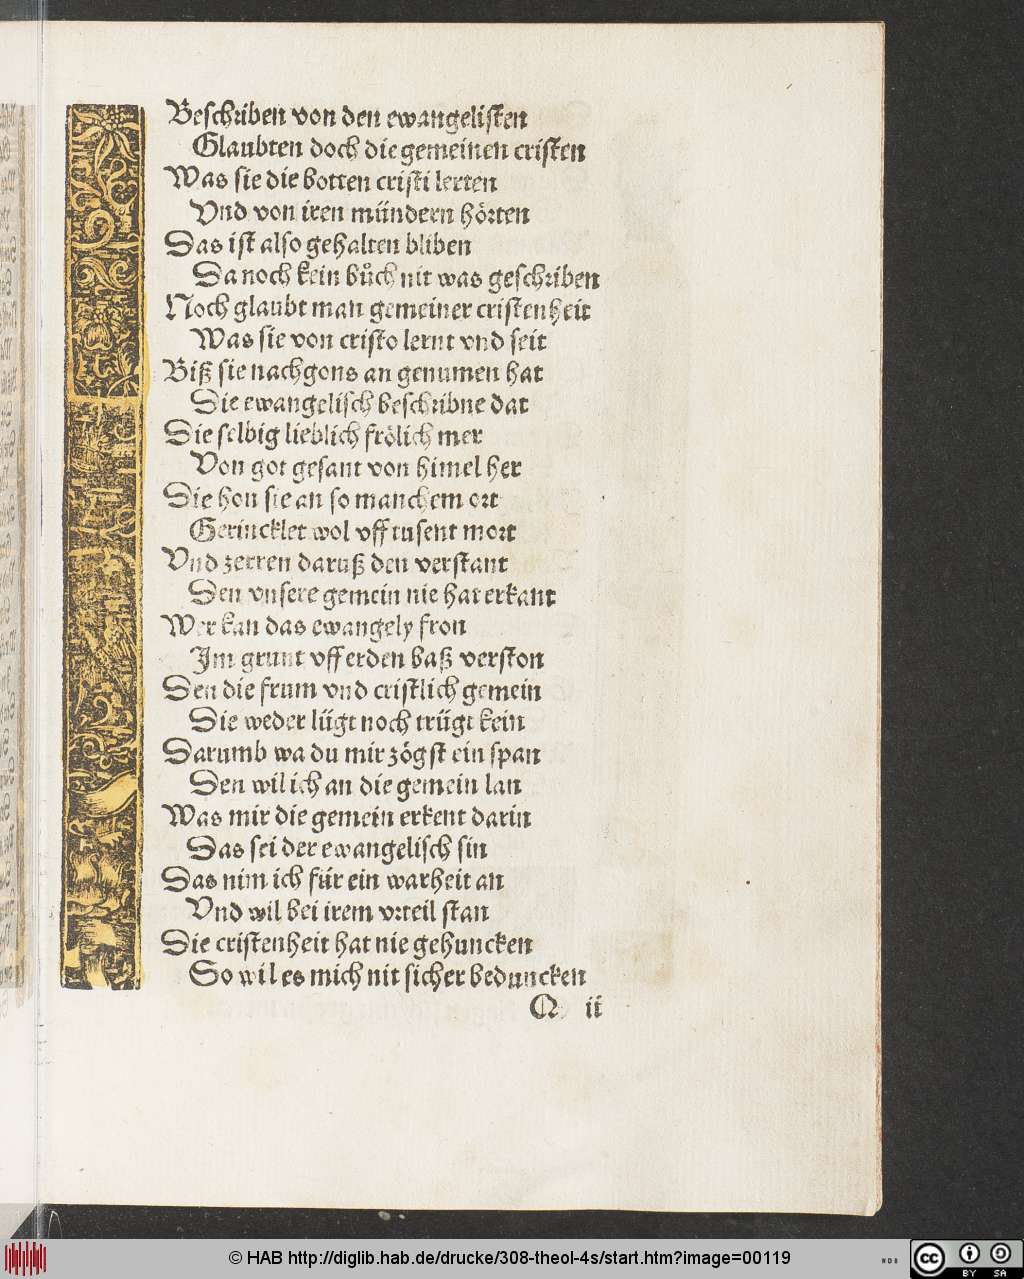 Beschriben von den ewangelisten
Glaubten doch die gemeinen cristen
Was sie die botten cristi lerten
Vnd von iren mündern hörten
Das ist also gehalten bliben
Da noch kein bůch nit was geschriben
Noch glaubt man gemeiner cristenheit
Was sie von cristo lernt vnd seit
Biß sie nachgons an genumen hat
Die ewangelisch beschribne dat
Die selbig lieblich frölich mer
Von got gesant von himel her
Die hon sie an so manchem ort
Gerincklet wol vff tusent mort
Vnd zerren daruß den verstant
Den vnsere gemein nie hat erkant
Wer kan das ewangely fron
Im grunt vff erden baß verston
Den die frum vnd cristlich gemein
Die weder lügt noch trügt kein
Darumb wa du mir zögst ein span
Den wil ich an die gemein lan
Was mir die gemein erkent darin
Das sei der ewangelisch sin
Das nim ich für ein warheit an
Vnd wil bei irem vrteil stan
Die cristenheit hat nie gehuncken
So wil es mich nit sicher beduncken
Q ii
© HAB http://diglib.hab.de/drucke/308-theol-4s/start.htm?image=00119
cc BY SA